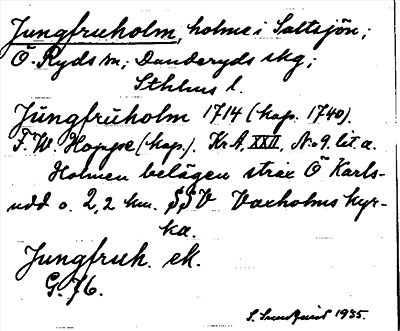 Jungfruholm, holme i Saltsjön;
Ö. Ryds sn; Danderyds skg;
Sthlms l.
Jungfruholm 1714 (kop. 1740).
F. W. Hoppe (kop.). KrA, XXII, No 9. lit. a.
Holmen belägen strax Ö Karls-
udd o. 2,2 km. SSV Vaxholms kyr-
ka.
Jungfruh. ek.
G. 76.
S. Sundquist 1935.